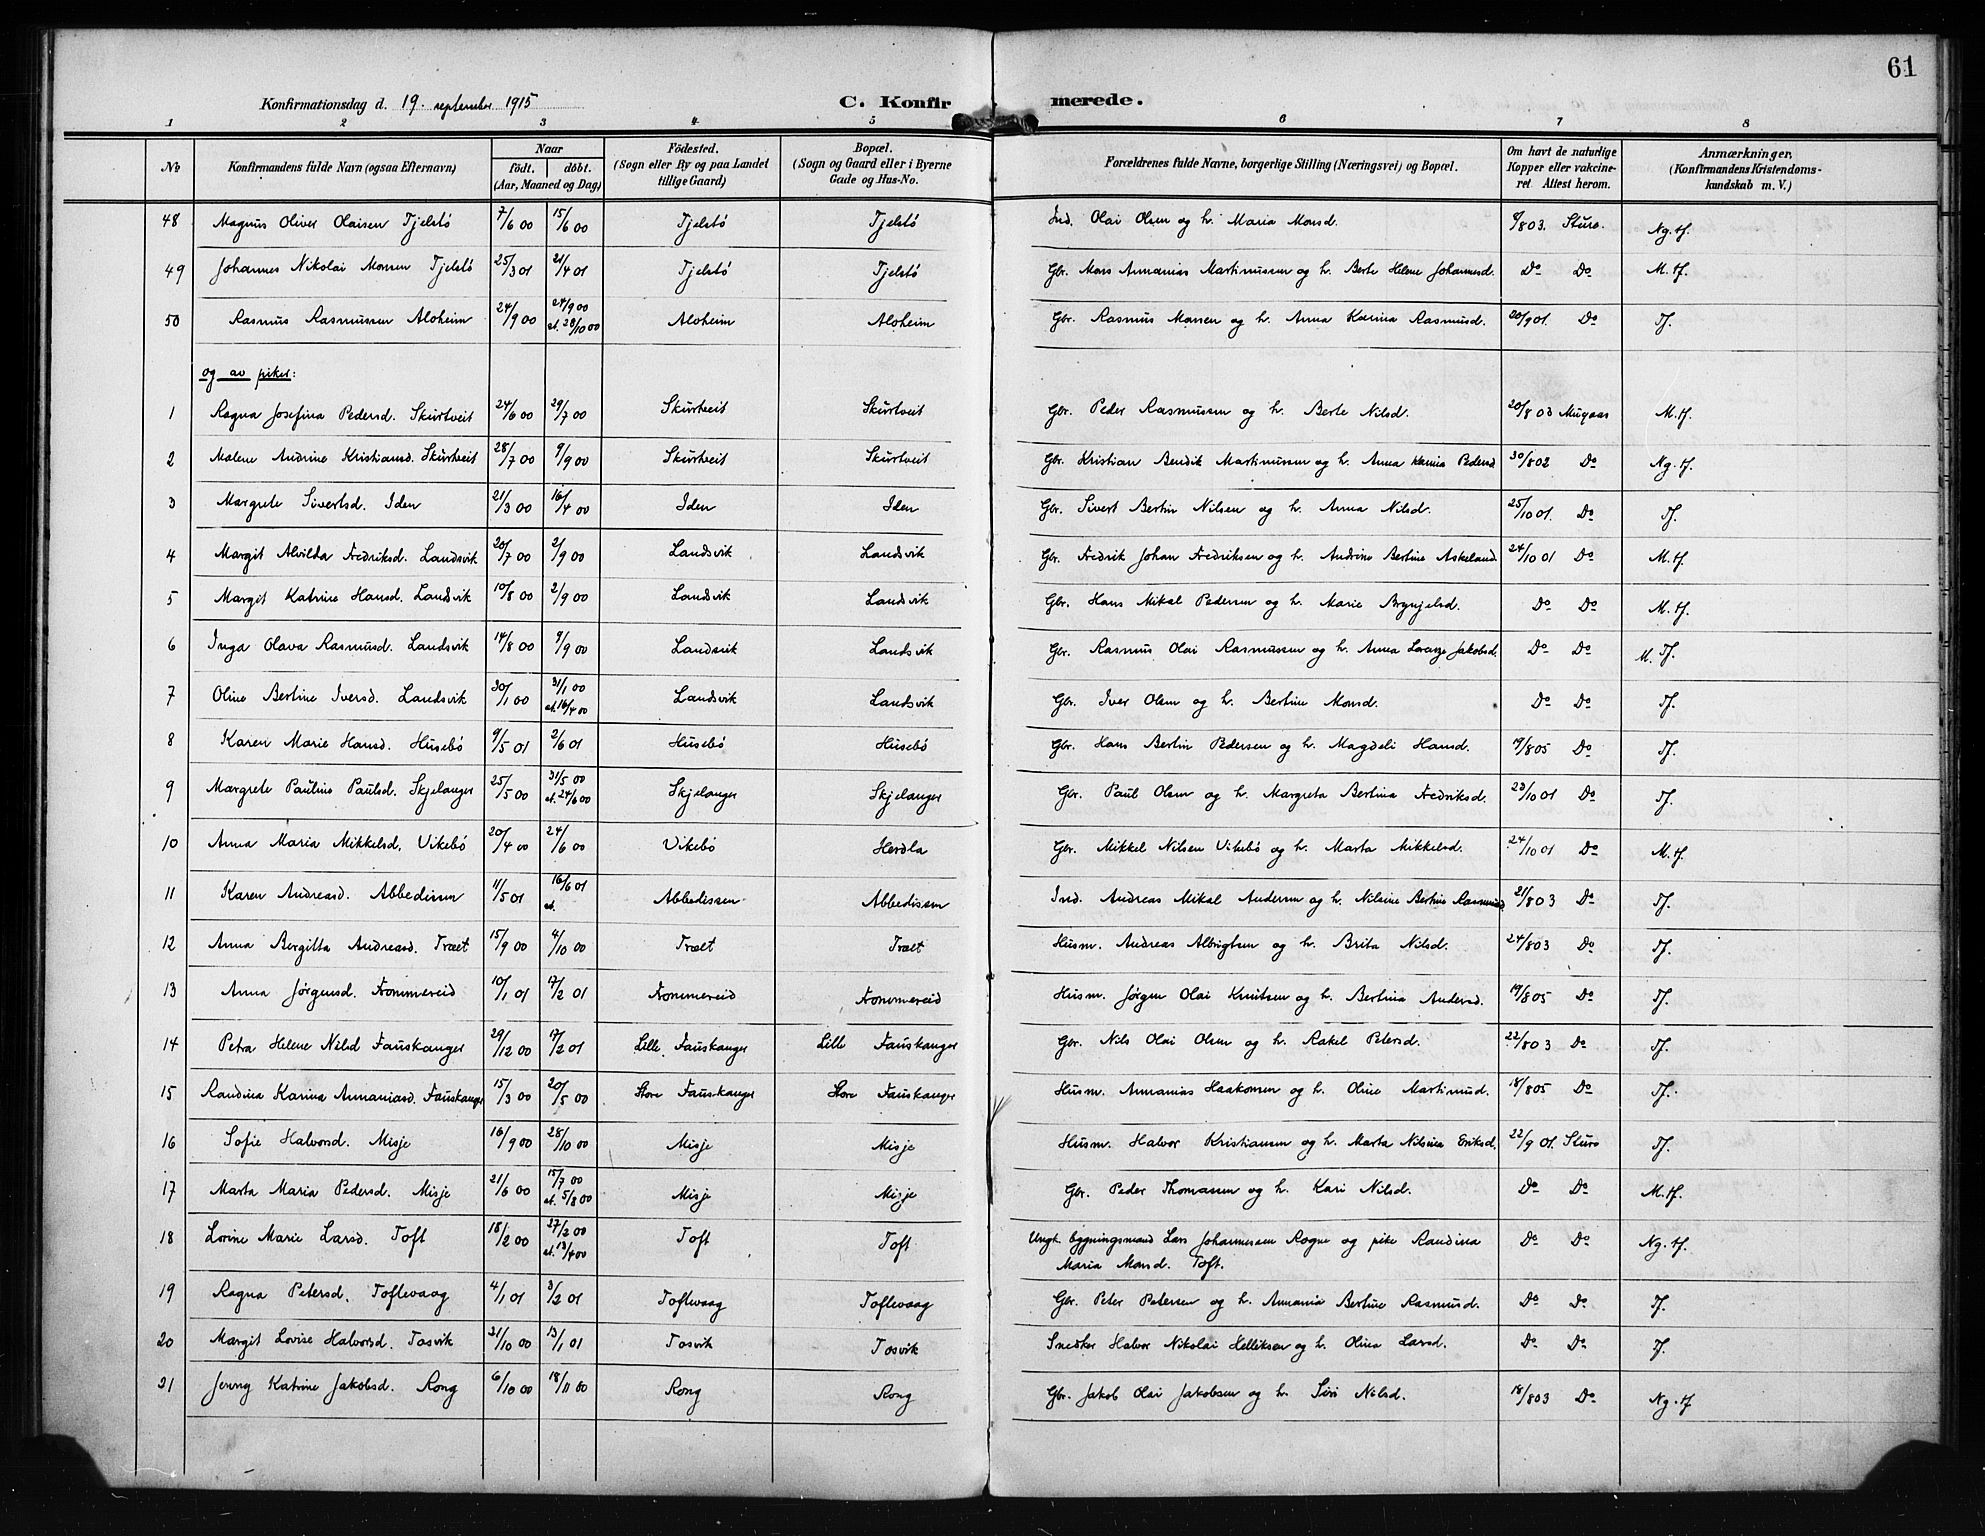 61
Konfirmationsdag d. 19. september 1915
C. Konfirmerede.
1 2 3 4 5 6 7 8
No Konfirmandens fulde Navn (ogsaa Efternavn) Naar født. døbt. (Aar, Maaned og Dag) Fødested. (Sogn eller By og paa Landet tillige Gaard) Bopæl. (Sogn og Gaard eller i Byerne Gade og Hus-No. Forældrenes fulde Navne, borgerlige Stilling (Næringsvei) og Bopæl. Om havt de naturlige Kopper eller vakcineret Attest herom. Anmærkninger, (Konfirmandens Kristendomskundskab m. V.)
48 Magnus Oliver Olaisen Tjelstø 7/6 00 15/6 00 Tjelstø Tjelstø Ind. Olai Olsen og h. Maria Monsd. 8/8 03. Sture. Ng. tf.
49 Johannes Nikolai Monsen Tjelstø 25/3 01 21/4 01 Tjelstø Tjelstø Gbr. Mons Annanias Martinussen og h. Berte Helene Johannesd. Do Do M. tf.
50 Rasmus Rasmussen Aloheim 24/9 00 24/9 00 st. 28/10 00 Aloheim Aloheim Gbr. Rasmus Monsen og h. Anna Karina Rasmusd. 20/9 01. Do Tf.
og av piker:
1 Ragna Josefina Pedersd. Skurtveit 24/6 00 29/7 00 Skurtveit Skurtveit Gbr. Peder Rasmussen og h. Berte Nilsd. 20/8 03 Mugaas M. tf.
2 Malene Andrine Kristiansd. Skurtveit 28/7 00 9/9 00 Skurtveit Skurtveit Gbr. Kristian Bendik Martinussen og h. Anna Karina Pedersd 30/8 02 Do Ng. tf.
3 Margrete Sivertsd. Iden 21/3 00 16/4 00 Iden Iden Gbr. Sivert Bertin Nilsen og h. Anna Nilsd. 25/10 01. Do Tf.
4 Margit Alvilda Fredriksd. Landsvik 20/7 00 2/9 00 Landsvik Landsvik Gbr. Fredrik Johan Fredriksen og h. Andrine Bertine Askeland 24/10 01 Do M. tf.
5 Margit Katrine Hansd. Landsvik 10/8 00 2/9 00 Landsvik Landsvik Gbr. Hans Mikal Pedersen og h. Marie Brynjelsd. Do Do M. tf.
6 Inga Olava Rasmusd. Landsvik 14/8 00 9/9 00 Landsvik Landsvik Gbr. Rasmus Olai Rasmussen og h. Anna Jakobsd. Do Do M. Tf.
7 Oline Bertine Iversd. Landsvik 30/1 00 31/1 00 st. 16/4 00 Landsvik Landsvik Gbr. Iver Olsen og h. Bertine Monsd. Do Do Tf.
8 Karen Marie Hansd. Husebø 9/5 01 2/6 01 Husebø Husebø Gbr. Hans Bertin Pedersen og h. Magdeli Hansd. 19/8 05 Do Tf.
9 Margrete Pauline Paulsd. Skjelanger 25/5 00 31/5 00 st. 24/6 00 Skjelanger Skjelanger Gbr. Paul Olsen og h. Margreta Bertina Fredriksd. 23/10 01 Do Tf.
10 Anna Maria Mikkelsd. Vikebø 20/4 00 24/6 00 Vikebø Herdla Gbr. Mikkel Nilsen Vikebø og h. Marta Mikkelsd. 24/10 01 Do M. tf.
11 Karen Andreasd. Abbedissen 11/5 01 16/6 01 st. Abbedissen Abbedissen Ind. Andreas Mikal Andersen og h. Nilsine Bertine Rasmusd 21/8 03 Do Tf.
12 Anna Bergitta Andreasd. Træet 15/9 00 4/10 00 Træet Træet Husm. Andreas Albrigtsen og h. Brita Nilsd. 24/8 03 Do Tf.
13 Anna Jørgensd. Frommereid 10/1 01 17/2 01 Frommereid Frommereid Husm. Jørgen Olai Knutsen og h. Bertina Andersd. 19/8 05 Do Tf.
14 Petra Helene Nilsd Fauskanger 29/12 00 17/2 01 Lille Fauskanger Lille Fauskanger Gbr. Nils Olai Olsen og h. Rakel Petersd. 22/8 03 Do Tf.
15 Randina Karina Annaniasd. Fauskanger 15/3 00 20/5 00 Store Fauskanger Store Fauskanger Husm. Annanias Haakonsen og h. Oline Martinusd. 18/8 05 Do Tf.
16 Sofie Halvorsd. Misje 16/9 00 28/10 00 Misje Misje Husm. Halvor Kristiansen og h. Marta Nilsina Eriksd. 22/9 01. Sture Tf.
17 Marta Maria Pedersd. Misje 21/6 00 15/7 00 st. 5/8 00 Misje Misje Gbr. Peder Thomassen og h. Kari Nilsd. Do Do M. tf.
18 Lovine Marie Larsd. Toft 18/2 00 27/2 00 st. 13/4 00 Toft Toft Ungk. bygningsmand Lars Johannessen Rogne og pike Randina Maria Monsd. Toft. Do Do Ng. tf.
19 Ragna Petersd. Toftevaag 4/1 01 3/2 01 Toftevaag Toftevaag Gbr. Peter Petersen og h. Annania Bertine Rasmusd. Do Do Tf.
20 Margit Lovise Halvorsd. Tosvik 31/10 00 13/1 01 Tosvik Tosvik Snedker Halvor Nikolai Helliksen og h. Olina Larsd. Do Do Tf.
21 Jenny Katrine Jakobsd. Rong 6/10 00 18/11 00 Rong Rong Gbr. Jakob Olai Jakobsen og h. Siri Nilsd. 18/8 03 Do Ng. tf